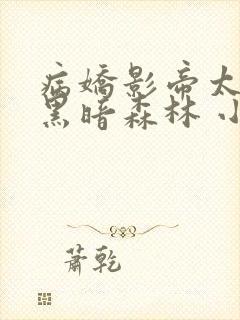 病嬌影帝太
黑暗森林 小
蕭乾